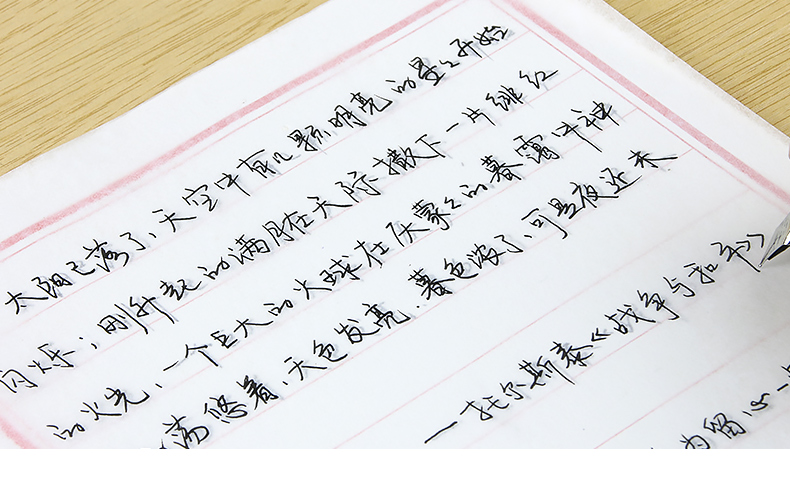 太阳已落了、天空中有几颗明亮的星星开始
闪烁；刚升起的满月在天际撒下一片绯红
的火光、一个巨大的火球在灰蒙蒙的暮霭中神
荡悠着、天色发亮．暮色浓了、可是夜还未
—托尔斯泰《战争与和平》
为留心一